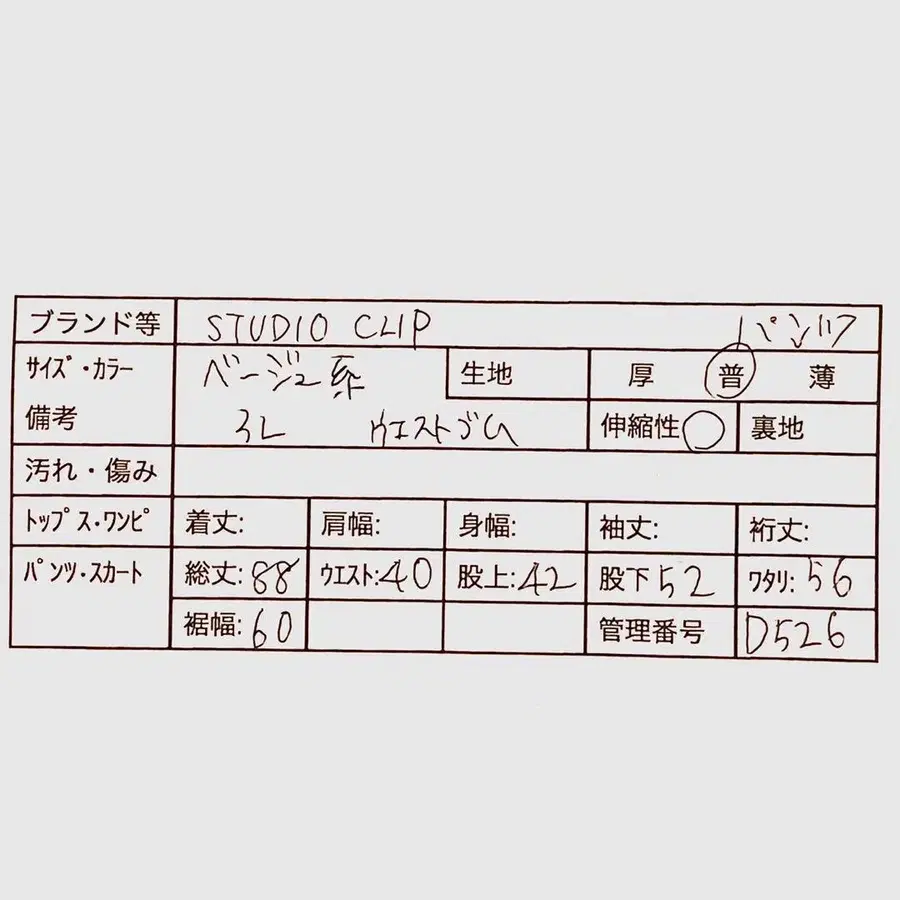 ブランド等 STUDIO CLIP パンツ
サイズ・カラー ベージュ系 生地 厚 普 薄
備考 3L ウエストゴム 伸縮性 ○ 裏地
汚れ・傷み
トップス・ワンピ 着丈: 肩幅: 身幅: 袖丈: 裄丈:
パンツ・スカート 総丈:88 ウエスト:40 股上:42 股下52 ワタリ:56
裾幅:60 管理番号 D526